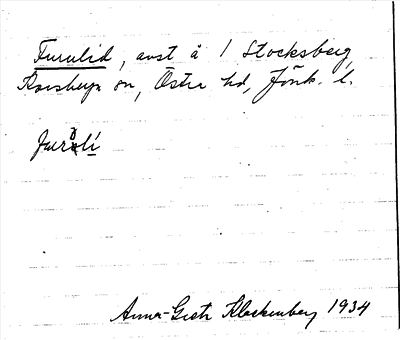 Furulid, avst å 1 Stocksberg,
Korsberga sn, Östra hd, Jönk. l.
Anna-Greta Klockenberg 1934